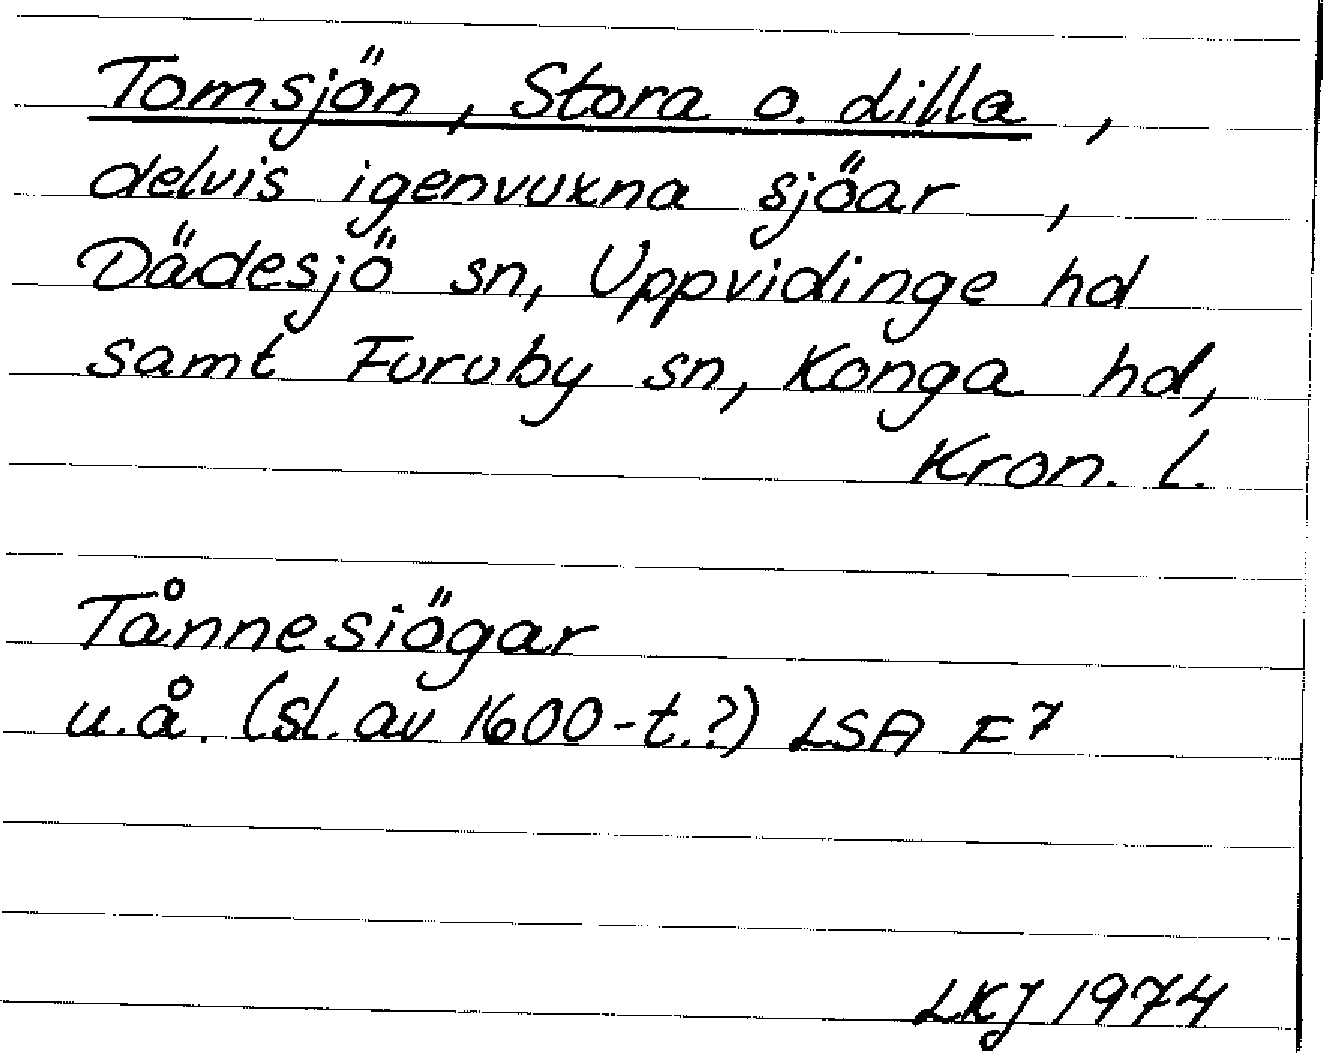 Tomsjön, Stora o. Lilla,
delvis igenvuxna sjöar,
Dädesjö sn, Uppvidinge hd
samt Furuby sn, Konga hd,
Kron. l.
Tånnesiögar
u.å. (sl. av 1600-t.?) LSA F7
LKJ 1974